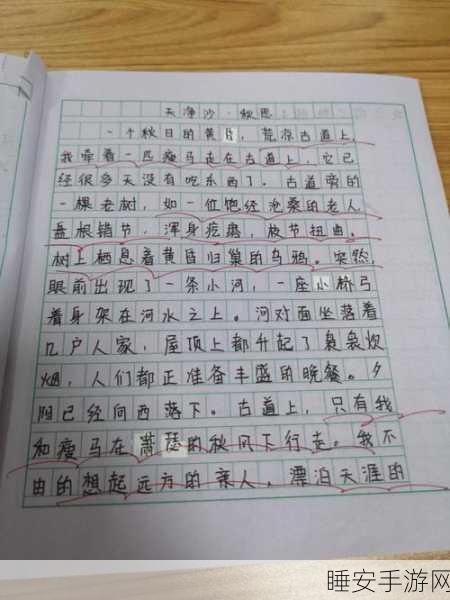 天净沙·秋思
一个秋日的黄昏，荒凉古道上
我牵着一匹瘦马走在古道上，它已
经很多天没有吃东西了。古道旁的
一棵老树，如一位饱经沧桑的老人
盘根错节，浑身疙瘩，枝节扭曲。
树上栖息着黄昏归巢的乌鸦。突然，
眼前出现了一条小河，一座小桥弓
着身架在河水之上。河对面坐落着
几户人家，屋顶上都升起了袅袅炊
烟，人们都正准备丰盛的晚餐。夕
阳已经向西落下。古道上，只有我
和瘦马在萧瑟的秋风下行走。我不
由的想起远方的亲人，漂泊天涯的
睡安手游网